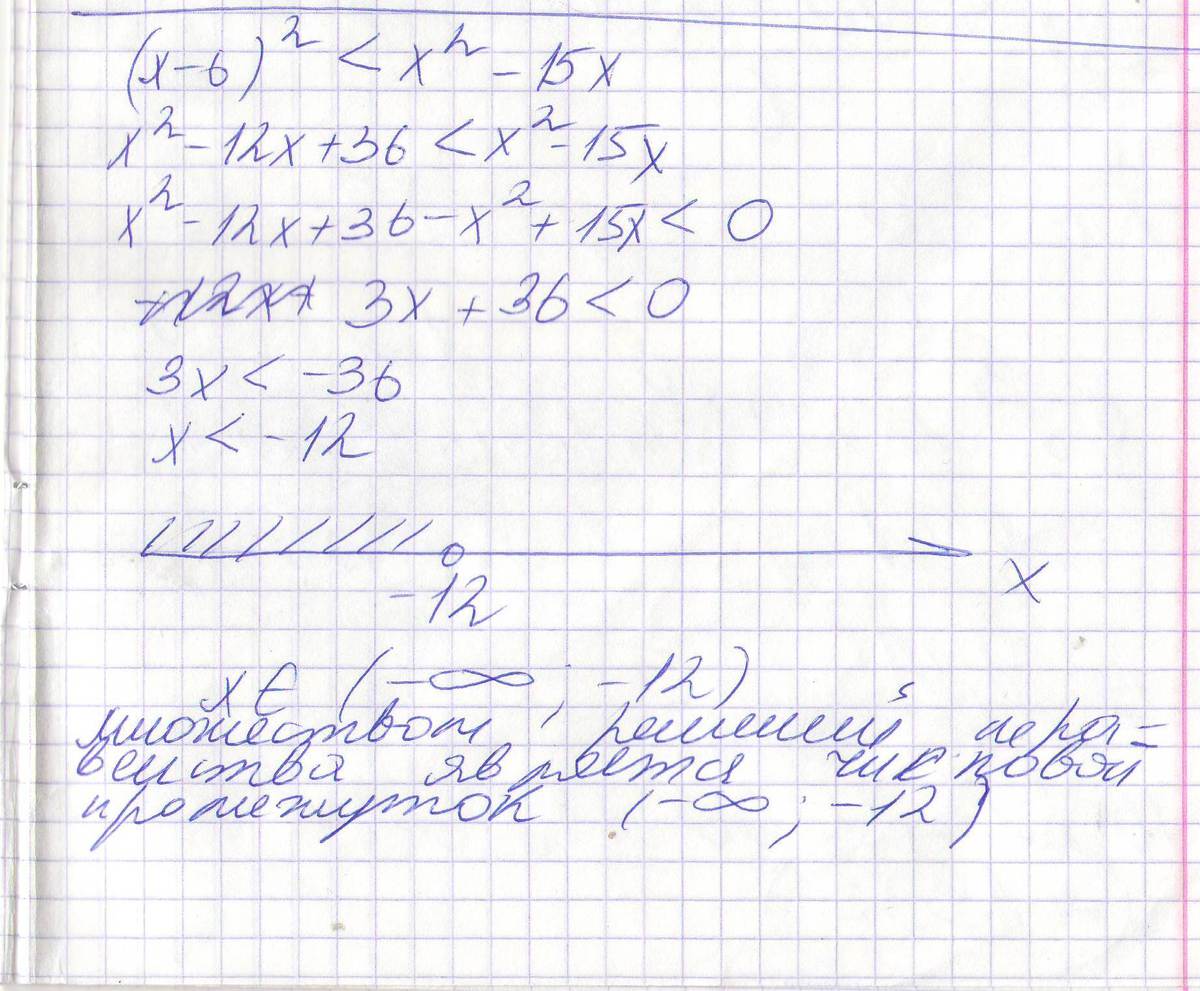 (x-6)² < x² - 15x
x² - 12x + 36 < x² - 15x
x² - 12x + 36 - x² + 15x < 0
3x + 36 < 0
3x < -36
x < -12
-12
x
x ∈ (-∞; -12)
множеством решений нера-
венства является числовой
промежуток (-∞; -12)